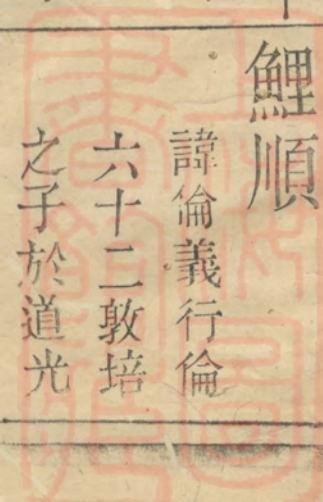 鯉順
諱倫義行倫
六十二敦培
之子於道光